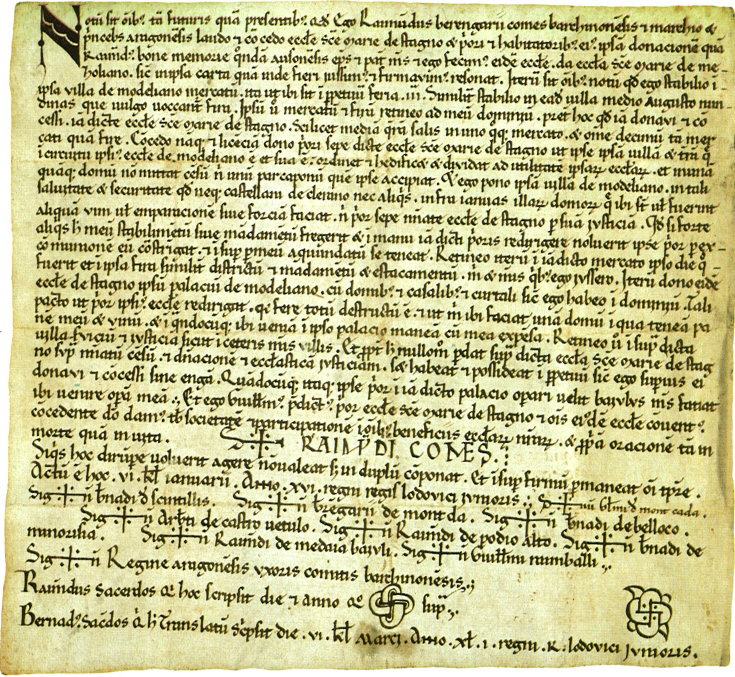 Notū sit oīb; tā futuris quā presentib; qđ Ego Raimūndus berengarii comes barchinonēsis & marchio &
p̄nceps aragonēsis laudo & cōcedo eccl̄e sc̄e marie de stagno & p̄ori & habitatorib; ei; ipsā donacionē quā
Raimūd; bone memorie qōdā ausonēsis ep̄s & pat̄ m̄s & ego fecim; eidē eccl̄e, de eccl̄a sc̄e marie de me-
holano. sic in ipsa carta quā inde fieri jussim; & firmavim; resonat. Iterū sit oīb; notū qđ ego stabilio ī
ipsa villa de modeliano mercatū, ita ut ibi sit ī p̄petuū feria .iii. Similit̄ stabilio in eađ villa medio Augusto nun-
dinas que vulgo voccant̄ firā. Ipsū ū mercatū & firā retineo ad meū dominiū. pret̄ hoc qđ iā donavi & cō
cessi. iā dicte eccl̄e sc̄e marie de stagno. Scilicet media q̄rā salis in uno qq; mercato. & om̄e decimū tā mer-
cati quā fire. Cōcedo naq; & licēciā dono p̄ori sepe dicte eccl̄e sc̄e marie de stagno ut ipse ipsā villā & t̄rā q̄
ī circuitu ipsi; eccl̄e de modeliano ē & sua ē. ordinet & hedificet & dividat ad utilitatē ipsar; eccl̄ar; & in unā
quāq; domū nō mittat cēsū n̄ unū parcaponū que ipse accipiat. & ego pono ipsā villā de modeliano. in tali
salvitate & securitate qđ neq; castellani de deīno nec aliq̄s. in fra ianuas illar; domor; q̄ ibi sī vl̄ fuerint
aliquā vim ul̄ emparacionē sive forciā faciat. n̄ p̄or sepe n̄nate eccl̄e de stagno p̄ suā justiciā. Qđ si forte
aliq̄s h̄ meū stabilimētū sive mādamētū fregerit & ī manu iā dicti p̄oris redirigere noluerit ipse p̄or p̄ ex-
cōmunionē eū cōstrigat. & ī sup̄ p̄ meū aquindatū se teneat. Retineo iterū ī iā dicto mercato ipso die q̄
fuerit et ī ipsa fira similit̄ districtū & mādametū & estacamentū. m̄ & m̄is qb; ego jussero. Iterū dono eidē
eccl̄e de stagno ipsū palaciū de modeliano. cū domib; & casalib; & curtali sic ego habeo ī dominiū. Tali
pacto ut p̄or ipsi; eccl̄e redirigat. q̄ fere totū destructū ē. & ut m̄ ibi faciat unā domū ī qua teneā pa
nē meū & vinū. & ī qn̄docūq; ibi venıā ī ipso palacio maneā cū mea expēsa. Retineo ū ī sup̄ dicta
villa servıciū & justicia sicut ī ceteris mis villis. Et p̄pt̄ h̄ nullom̄ p̄dat sup̄ dictā eccl̄a sc̄e marie de stag
no sup̄ n̄natū cēsū. & dn̄acionē & eccl̄asticā justiciam. Sꝫ habeat & possideat ī p̄petuū sic ego supius ei
donavi & cōcessi sine engā. Quādocūq; itaq; ipse p̄or ī iā dicto palacio opari velit baiulus m̄s faciat
ibi venire opā meā. Et ego Guill̄m; p̄dict; p̄or eccl̄e sc̄e marie de stagno & ōis ei;dē eccl̄e covent;
cōcedente do dam; t̄b societatē & participatione ī oīb; beneficiis eccl̄ar; nr̄ar; & p̄p̄a oracionē tā in
morte quā in vita. Sig+ RAIMŪDI COMES.
Siq̄s hoc dirūpe voluerit agere nō valeat s; in duplū cōponat. Et ī sup̄ firmū p̄maneat ōı tp̄re.
Actū ē hoc. vi. kl̄ ianuarii. Anno. xxvi. regni regis lodovici junioris. Sig+nū Gl̄mi đ mont cada.
Sig+n̄ b̄nadi đ scintillis. Sig+n̄ b̄regarii de mont da. Sig+n̄ b̄nadi de belloco.
Sig+n̄ Arb̄ti de castro vetulo. Sig+n̄ Raimūdi de podio alto. Sig+n̄ b̄nadi de
minorisa. Sig+n̄ Raimūdi de medaia baiuli. Sig+n̄ Guill̄mi raimballi.
Sig+n̄ Regine aragonēsis uxoris comitis barchinonēsis.
Raimūdus sacerdos q̄ hoc scripsit die & anno q̄ sup̄.
Bernad; Sac̄dos q̄ h̄ Translatū Sc̄psit die .vi. kl̄ Marci. Anno .xl. i. regni. R. lodovici junioris.